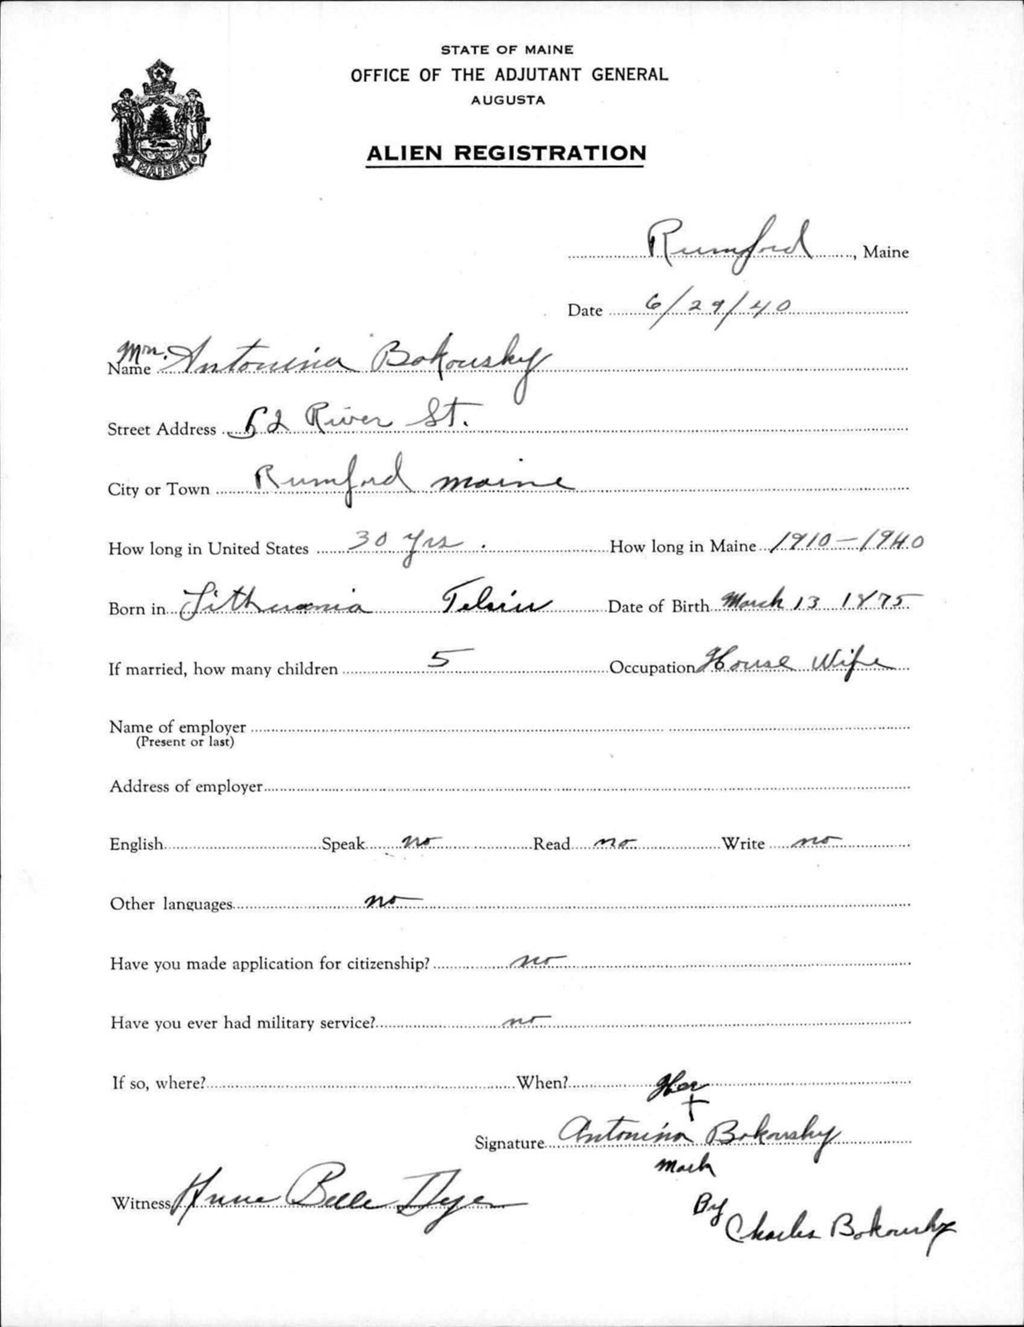 STATE OF MAINE
OFFICE OF THE ADJUTANT GENERAL
AUGUSTA
ALIEN REGISTRATION
MAINE
Rumford, Maine
Date 6/29/40
Name Mrs. Antonina Bokousky
Street Address 52 River St.
City or Town Rumford Maine
How long in United States 30 yrs. How long in Maine 1910-1940
Born in Lithuania Date of Birth March 13 1875
If married, how many children 5 Occupation House Wife
Name of employer
(Present or last)
Address of employer
English Speak no Read no Write no
Other languages no
Have you made application for citizenship? no
Have you ever had military service? no
If so, where? When?
Her
+
Signature Antonina Bokousky
mark
Witness Anne Belle Dyer
By
Charles Bokousky